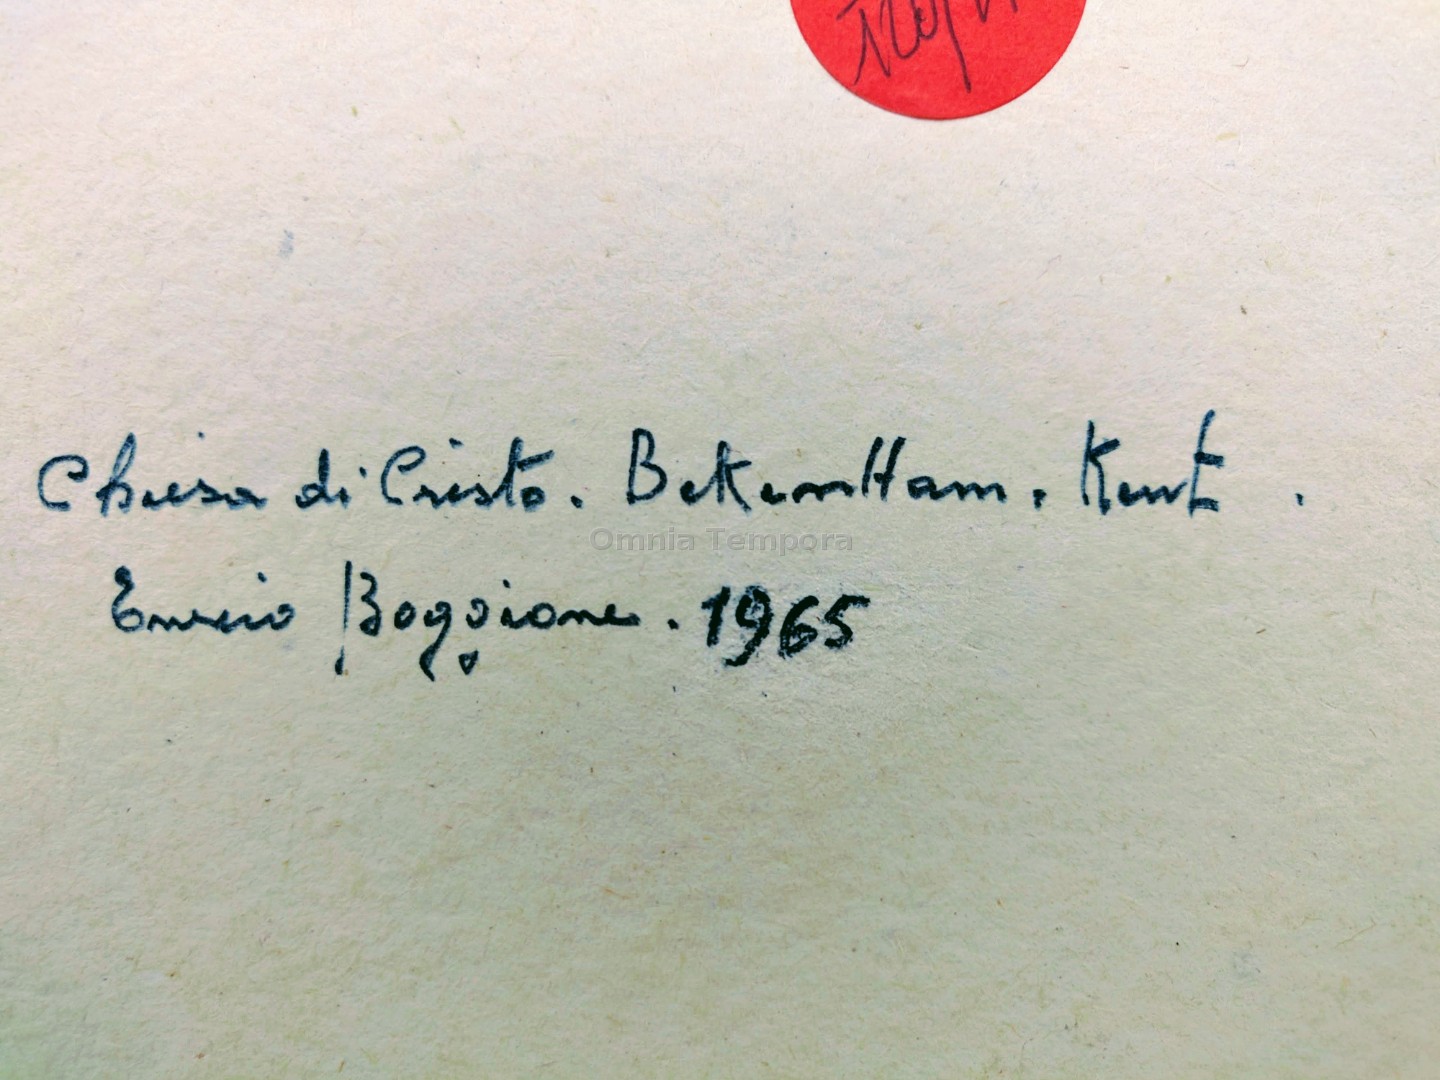 Chiesa di Cristo. BekenHam. Kent.
Omnia Tempora
Enzio Boggione. 1965